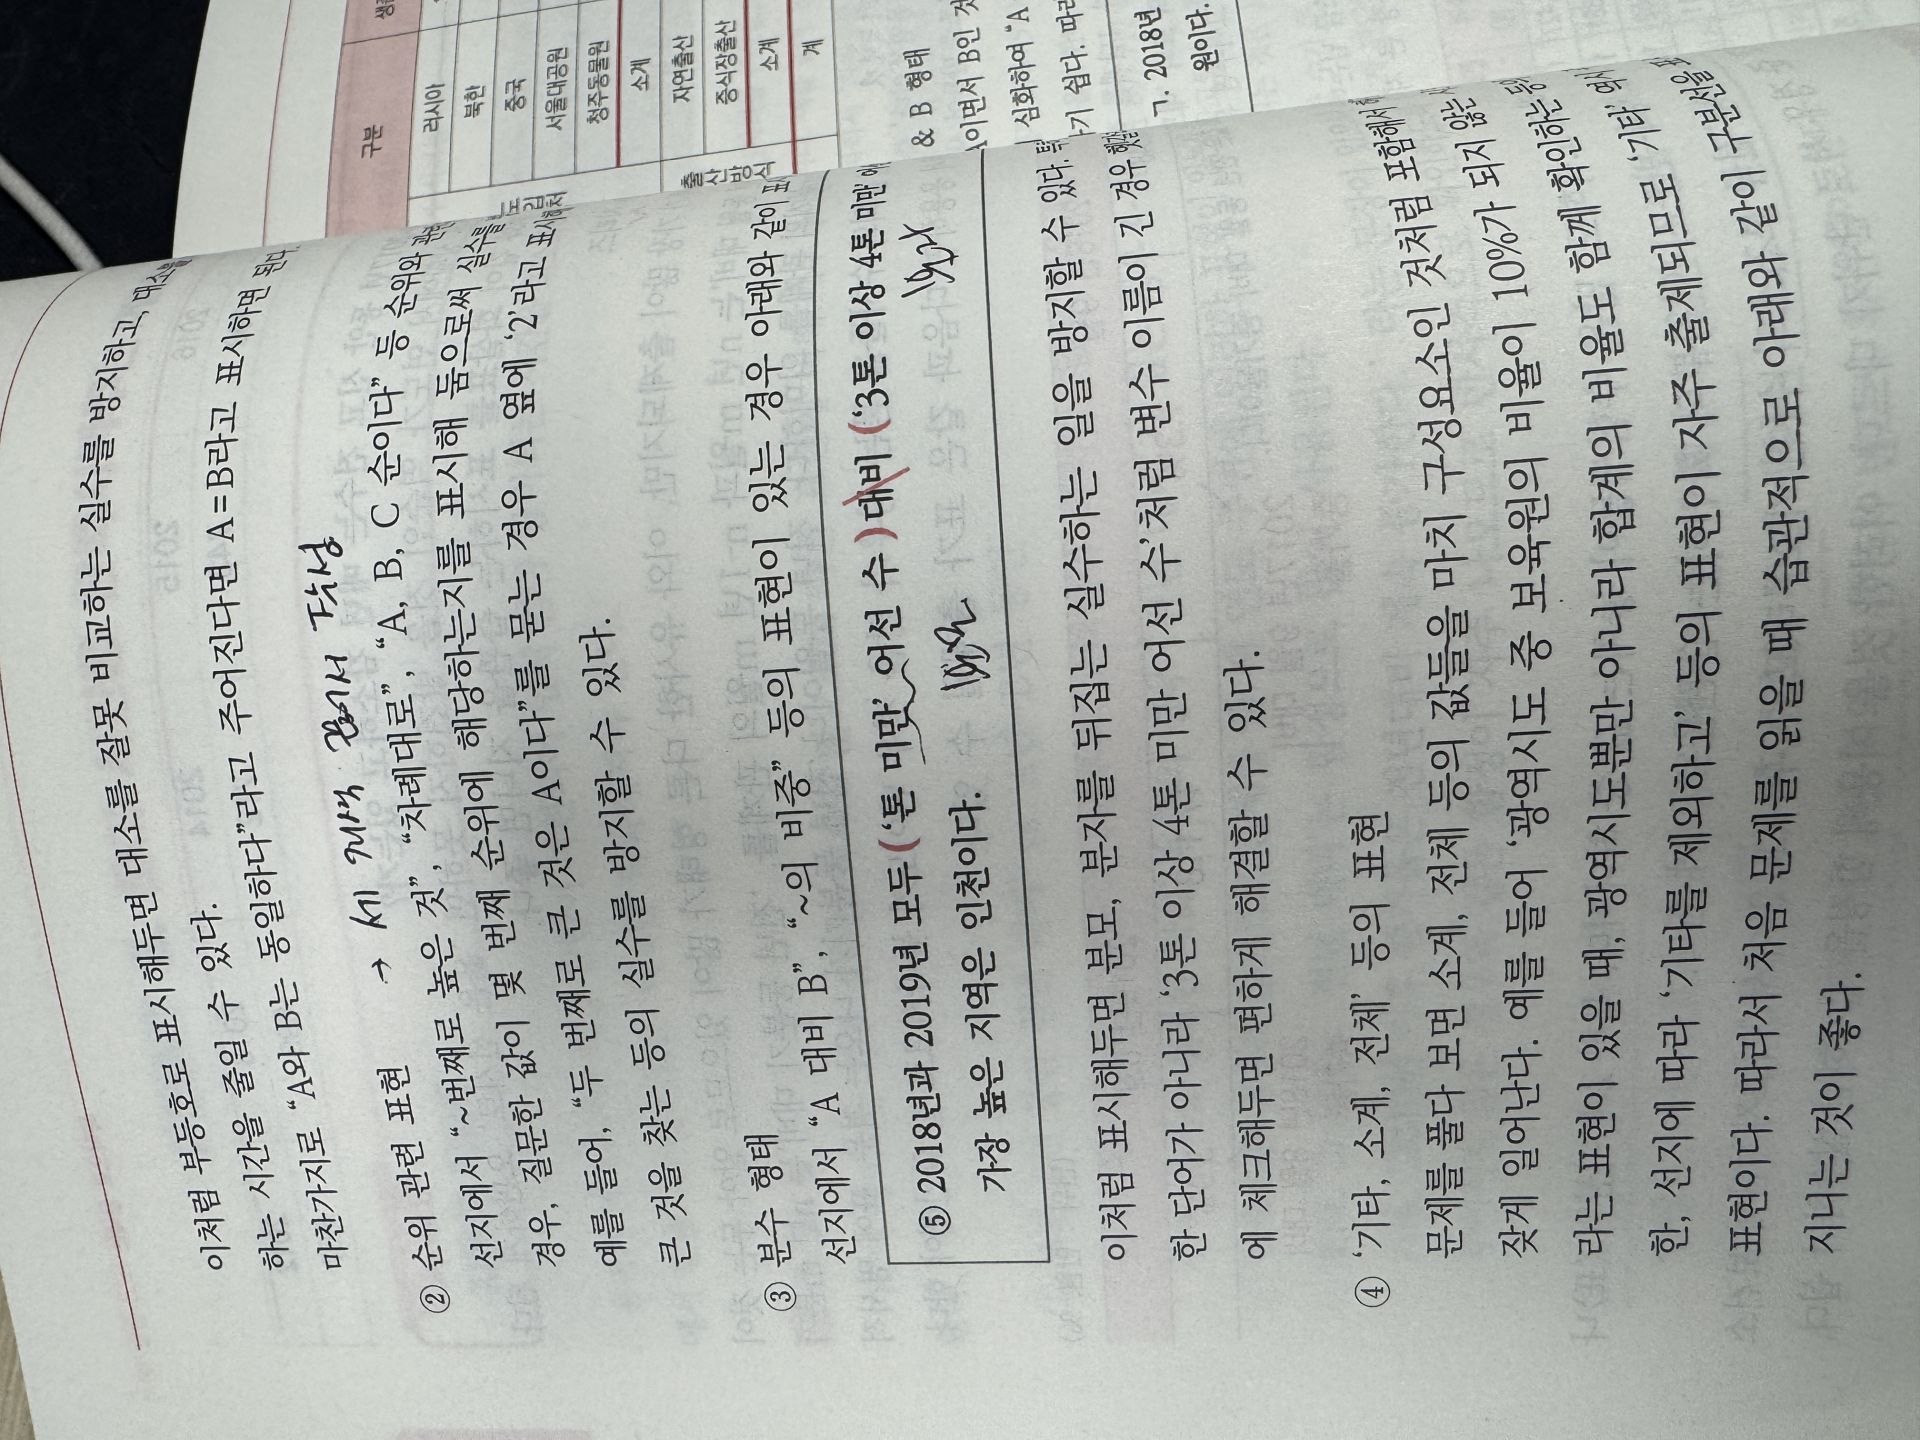 이처럼 부등호로 표시해두면 대소를 잘못 비교하는 실수를 방지하고,
하는 시간을 줄일 수 있다.
마찬가지로 “A와 B는 동일하다”라고 주어진다면 A=B라고 표시하면 된다.
② 순위 관련 표현 → 세 개씩 끊어서
선지에서 “~번째로 높은 것”, “차례대로”, “A, B, C 순이다” 등 순위와
경우, 질문한 값이 몇 번째 순위에 해당하는지를 표시해 둠으로써 실수를
예를 들어, “두 번째로 큰 것은 A이다”를 묻는 경우 A 옆에 ‘2’라고
큰 것을 찾는 등의 실수를 방지할 수 있다.
③ 분수 형태
선지에서 “A 대비 B”, “~의 비중” 등의 표현이 있는 경우 아래와 같이
⑤ 2018년과 2019년 모두 (‘톤 미만’ 어선 수) 대비 (‘3톤 이상 4톤 미만’
가장 높은 지역은 인천이다.
이처럼 표시해두면 분모, 분자를 뒤집는 실수하는 일을 방지할 수 있다.
한 단어가 아니라 ‘3톤 이상 4톤 미만 어선 수’처럼 변수 이름이 긴 경우
에 체크해두면 편하게 해결할 수 있다.
④ ‘기타, 소계, 전체’ 등의 표현
문제를 풀다 보면 소계, 전체 등의 값들을 마치 구성요소인 것처럼 포함해서
잦게 일어난다. 예를 들어 ‘광역시도 중 보육원의 비율이 10%가 되지 않는
라는 표현이 있을 때, 광역시도뿐만 아니라 합계의 비율도 함께 확인하는
한, 선지에 따라 ‘기타를 제외하고’ 등의 표현이 자주 출제되므로 ‘기타’
표현이다. 따라서 처음 문제를 읽을 때 습관적으로 아래와 같이 구분선을
지니는 것이 좋다.
구분
러시아
북한
중국
서울대공원
청주동물원
소계
출산방식
자연출산
증식장출산
소계
계
& B 형태
이면서 B인
심화하여 “A
기 쉽다.
ㄱ. 2018년
원이다.